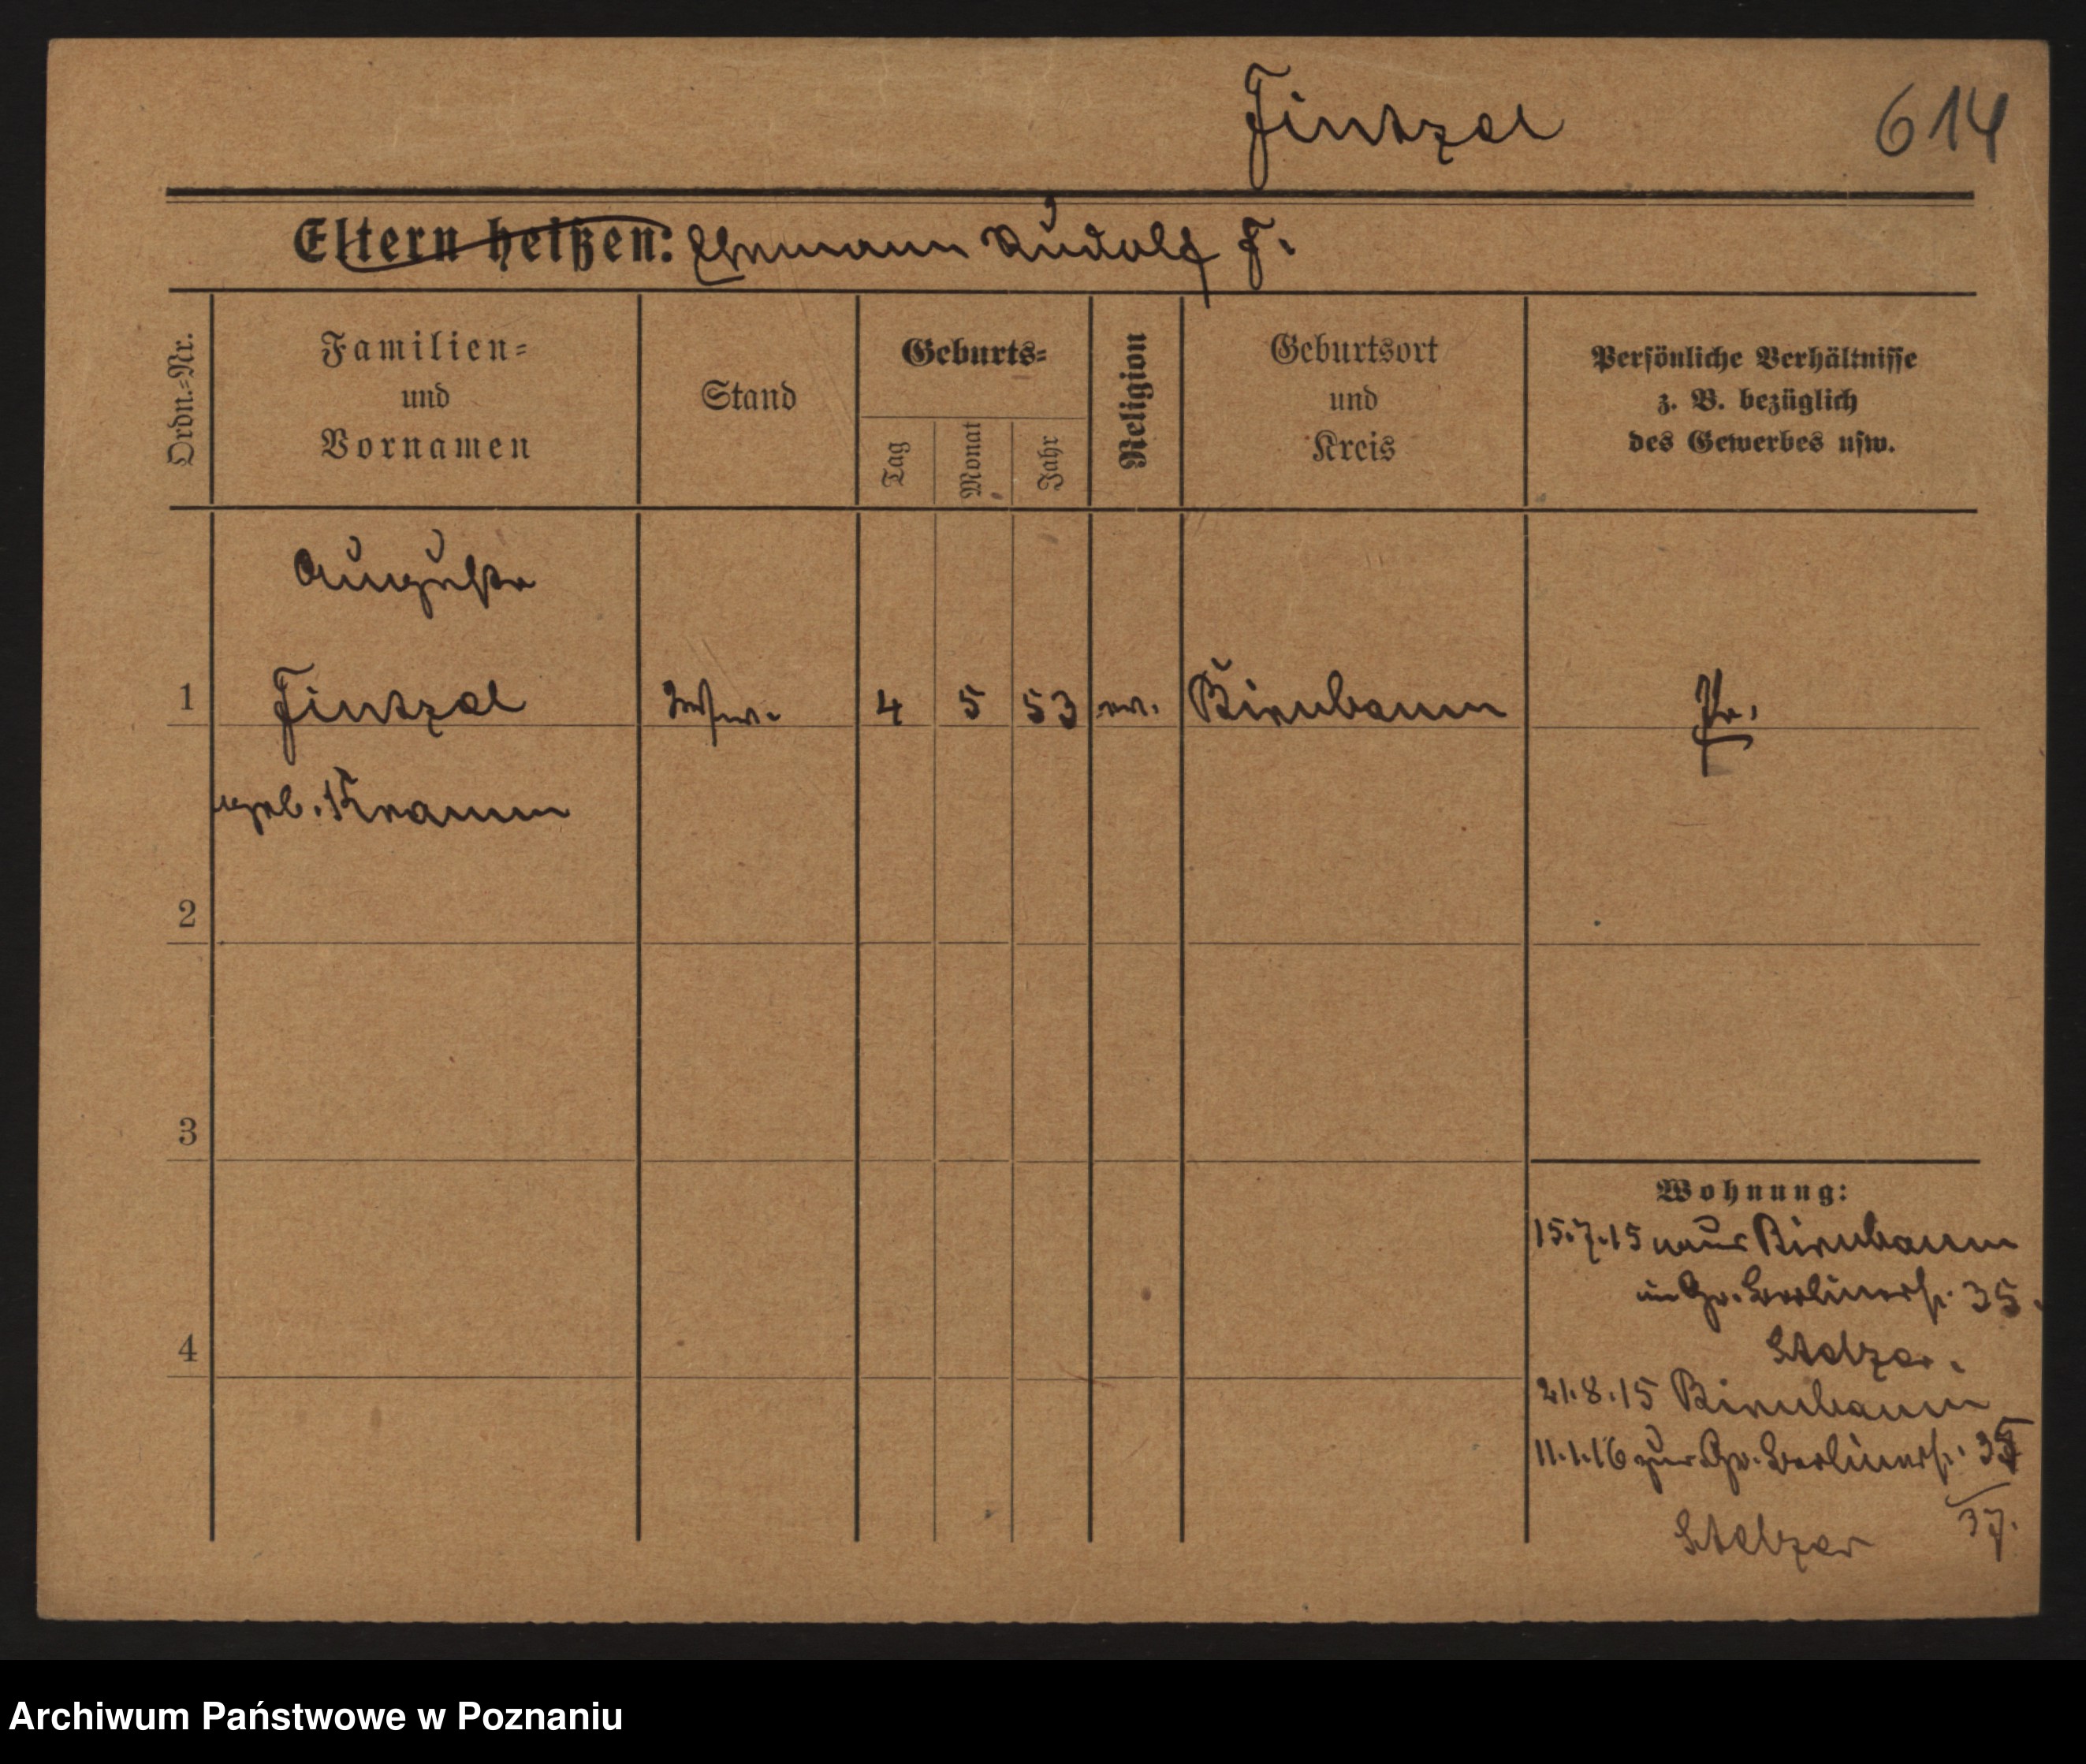 Fintzel
614
Eltern heißen: Ehemann Rudolf F.
Ordn.=Nr.
Familien=
und
Vornamen
Stand
Geburts=
Tag
Monat
Jahr
Religion
Geburtsort
und
Kreis
Persönliche Verhältnisse
z. B. bezüglich
des Gewerbes usw.
Auguste
1 Fintzel 4 5 53 ev. Birnbaum Pr.
geb. Kramm
2
3
4
Wohnung:
15.7.15 aus Birnbaum
in Gr. Berlinerstr. 35.
Stelzer.
21.8.15 Birnbaum
11.1.16 zur Gr. Berlinerstr. 35
37.
Stelzer
Archiwum Państwowe w Poznaniu